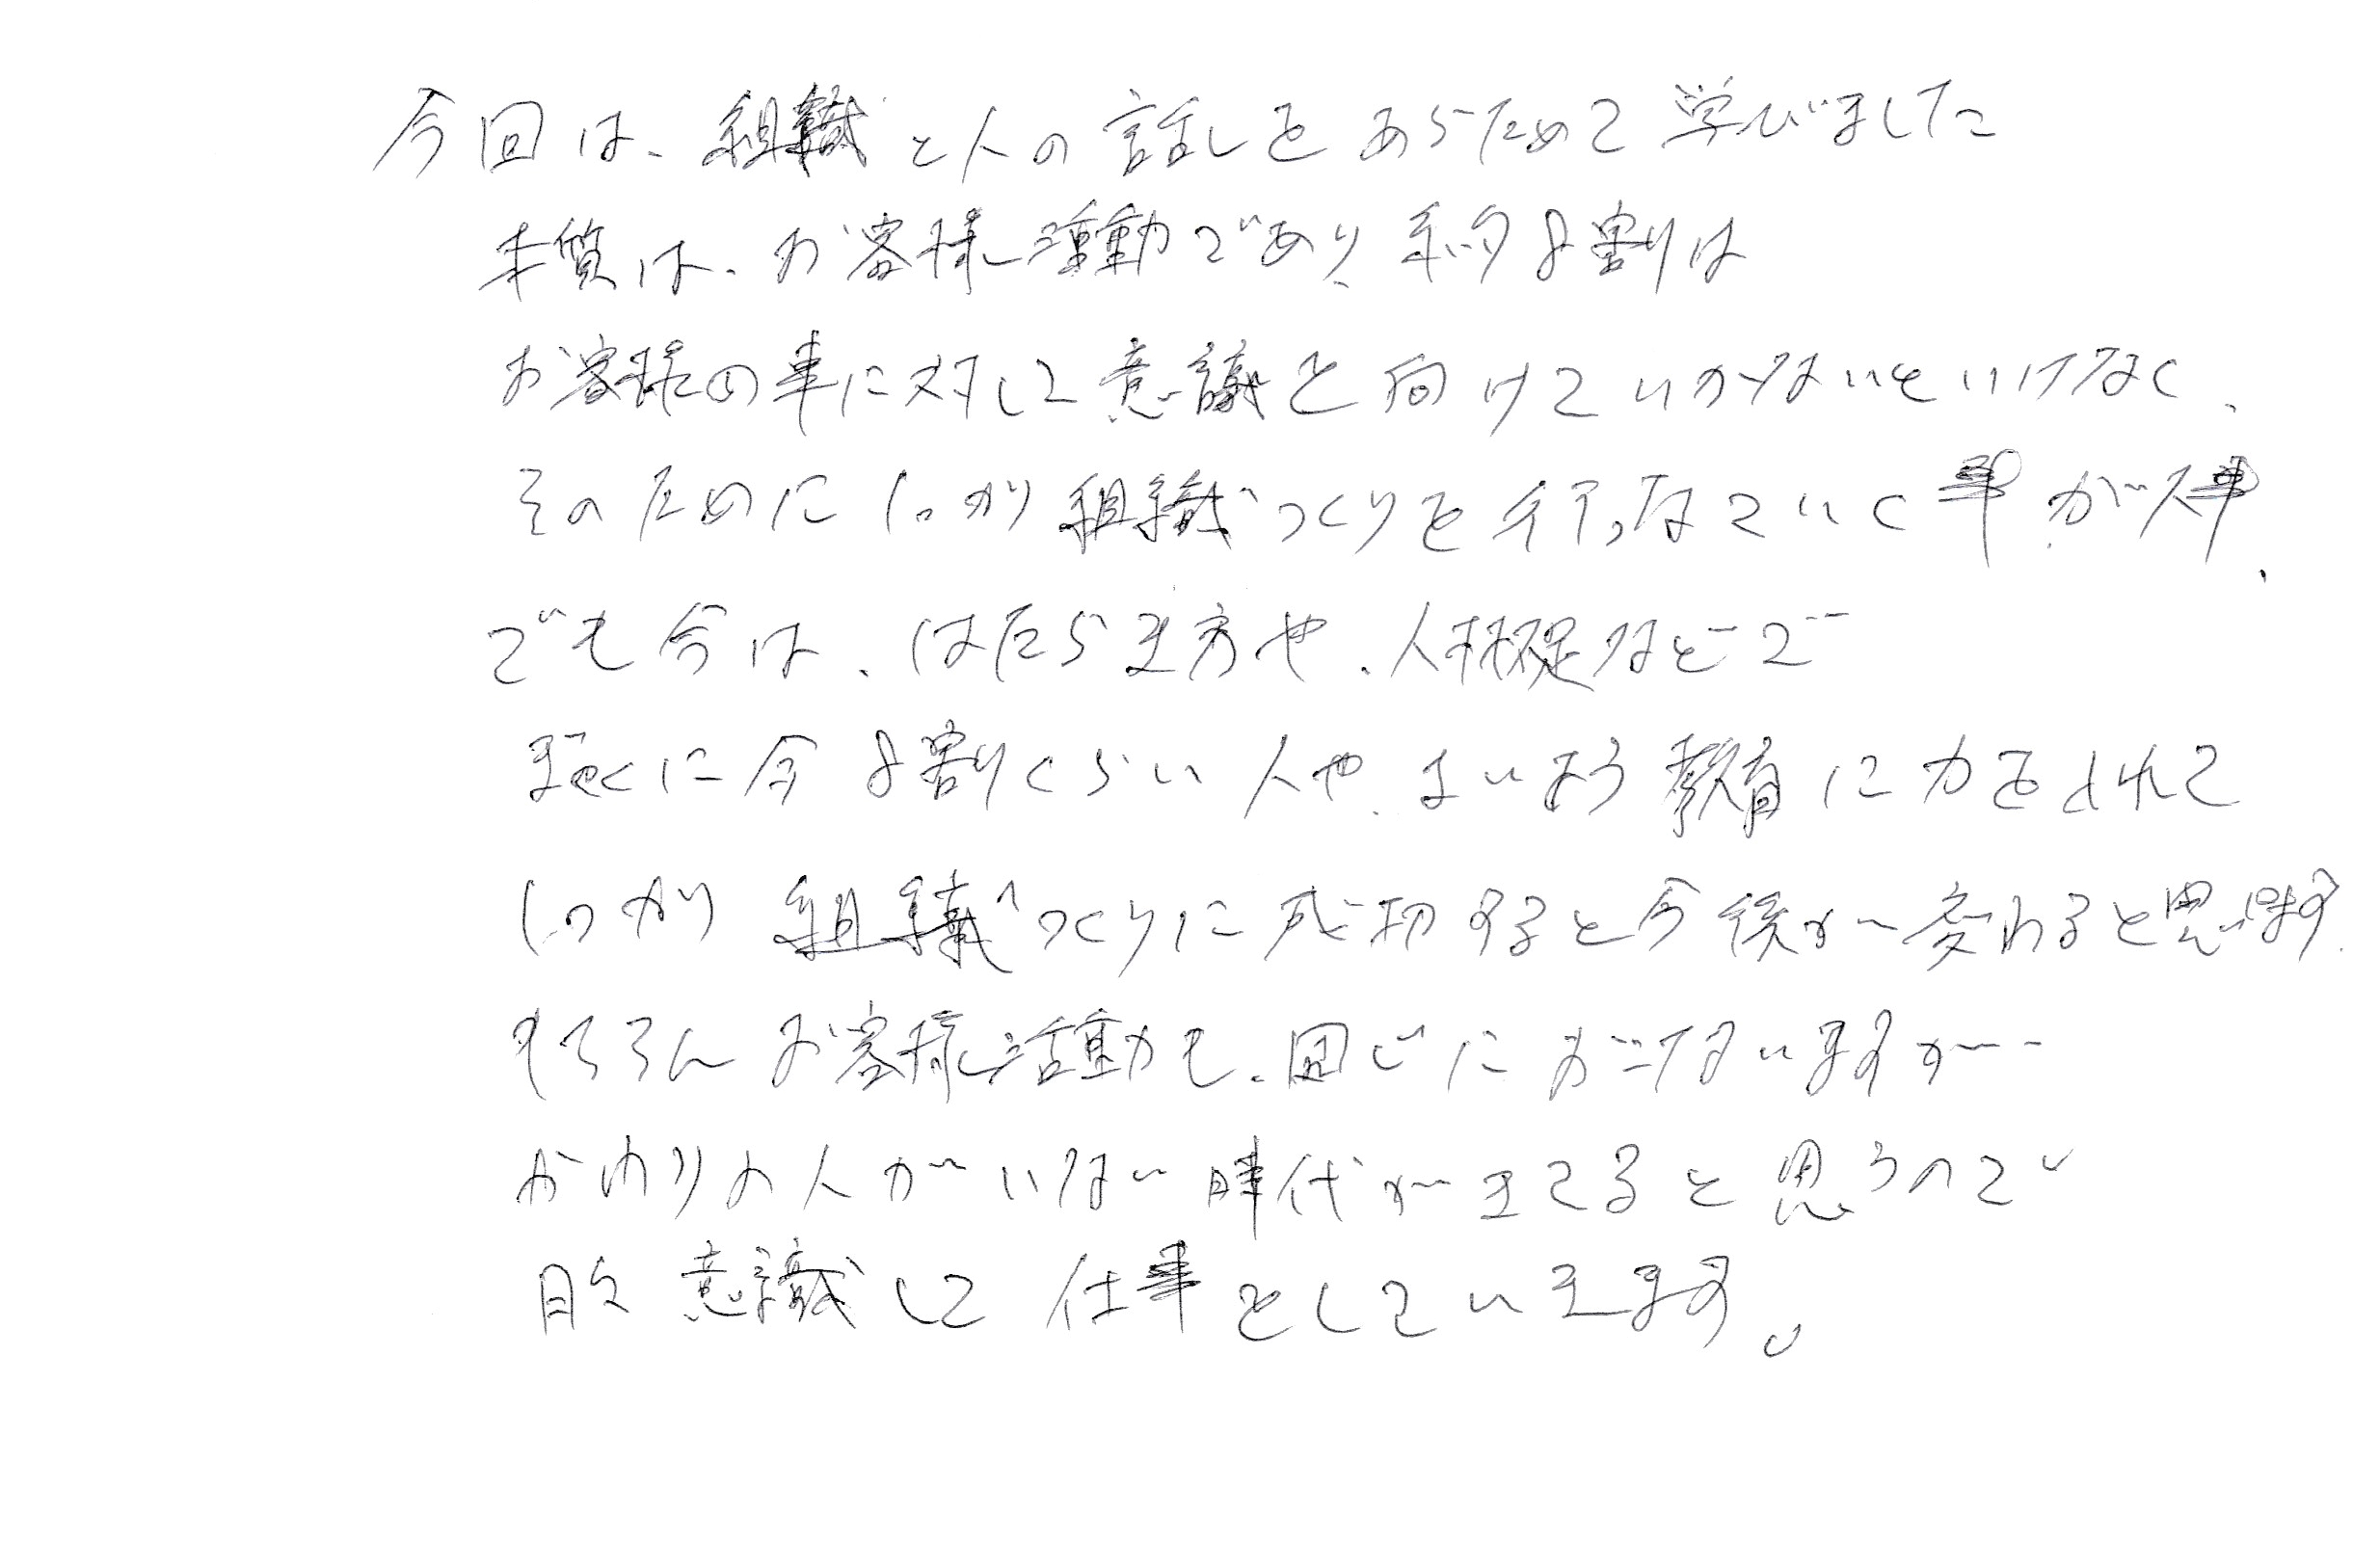 今回は、組織と人の話しをあらためて学びました
本質は、お客様活動であり、約8割は
お客様の事に対して意識を向けていかないといけなく、
そのためにしっかり組織づくりを行っなていく事が大事、
でも今は、はたらき方や、人材不足などで
に今8割りくらい人や、教育に力を入れて
しっかり組織づくりに成功すると今後が変わると思います。
もちろんお客様活動も、同じにおこないますが
かわりの人がいない時代がきてると思うので
日々意識して仕事をしていきます。